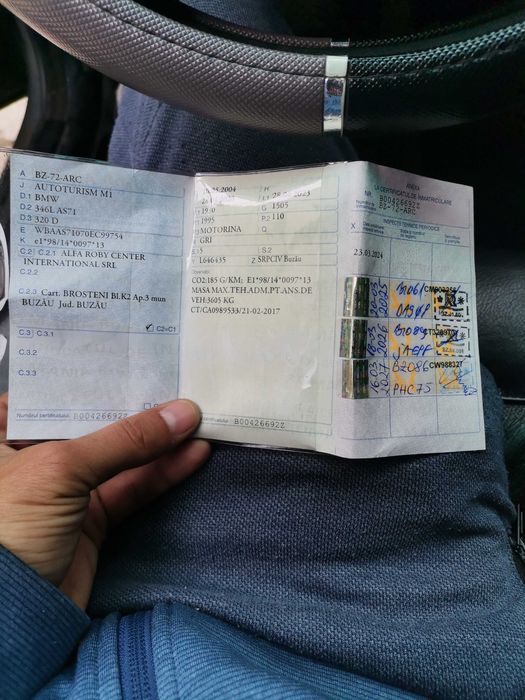 A BZ-72-ARC
J AUTOTURISM M1
D.1 BMW
D.2 346L AS71
D.3 320 D
E WBAAS71070EC99754
K e1*98/14*0097*13
C.2 C.2.1 ALFA ROBY CENTER
INTERNATIONAL SRL
C.2.2
C.2.3 Cart. BROSTENI Bl.K2 Ap.3 mun
BUZĂU Jud. BUZĂU
C.3 C.3.1
C2=C1
C.3.2
C.3.3
Numărul certificatului B00426692Z
.2004 H
I.1 28.07.2023
1950 G 1505
1995 P.2 110
MOTORINA
GRI
5 S.2
L646435 Z SRPCIV Buzău
CO2:185 G/KM; E1*98/14*0097*13
MASA MAX.TEH.ADM.PT.ANS.DE
VEH:3605 KG
CT/CA0989533/21-02-2017
certificatului B00426692Z
ANEXA
LA CERTIFICATUL DE ÎNMATRICULARE
B00426692Z
BZ-72-ARC
X INSPECȚII TEHNICE PERIODICE
23.03.2024
20-03
2025
18-03
2026
16-03
2027
BZ086
PHC75
CW988327